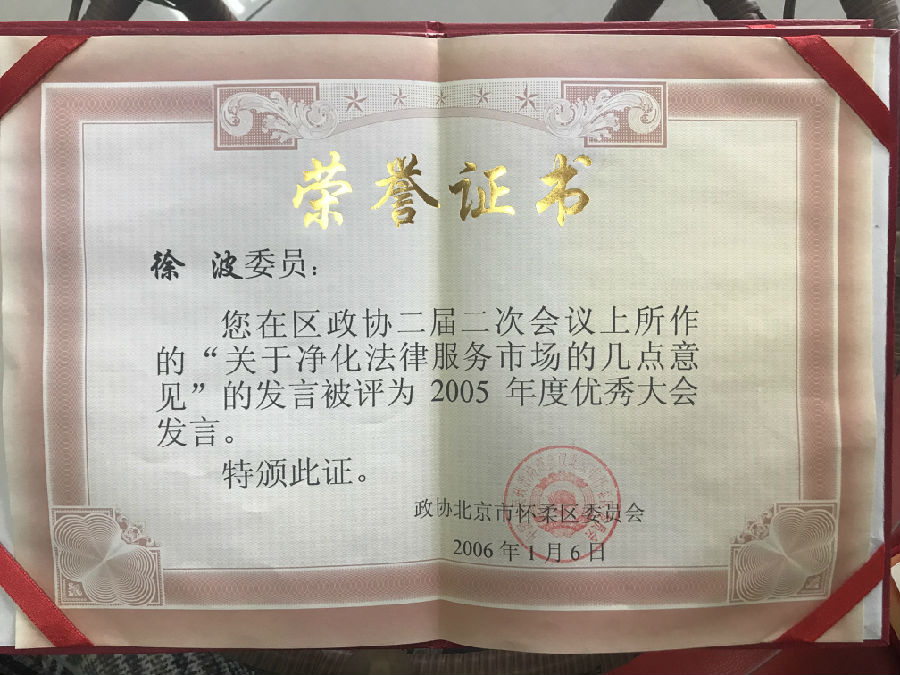 荣誉证书
徐 波委员：
您在区政协二届二次会议上所作
的“关于净化法律服务市场的几点意
见”的发言被评为 2005 年度优秀大会
发言。
特颁此证。
政协北京市怀柔区委员会
2006年1月6日